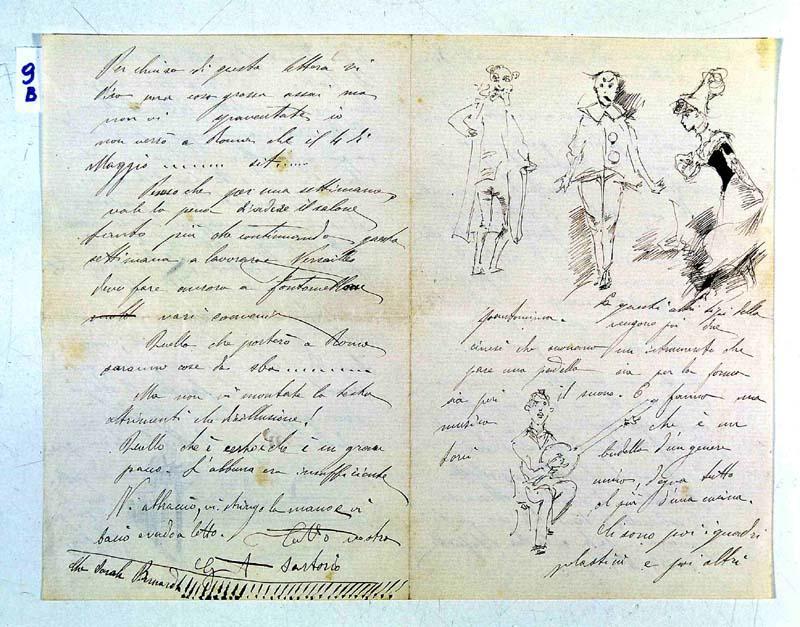 9
B
Per chiusa di questa lettera vi
dico una cosa grossa assai ma
non vi spaventate io
non verrò a Roma che il 4 di
Maggio
Penso che per una settimana
vale la pena di vedere il salone
tanto più che continuando questa
settimana a lavorare a Versailles
devo fare ancora a Fontainebleau
vari
Quello che porterò a Roma
saranno cose da sba
Ma non vi montate la testa
altrimenti che disillusione!
Quello che è certo è che è in gran
pacco. L'album era insufficiente
Vi abbraccio, vi stringo la mano e vi
bacio e vado a letto. Tutto vostro
G A Sartorio
che Sarah Bernardt
E questi altri tipi della
pantomima. vengono poi due
cinesi che suonano un istrumento che
pare una padella sia per la forma
sia poi il suono. E fanno una
musica che è un
budella d'un genere
unico, degna tutto
al più d'una cucina.
Ci sono poi i quadri
plastici e poi altri